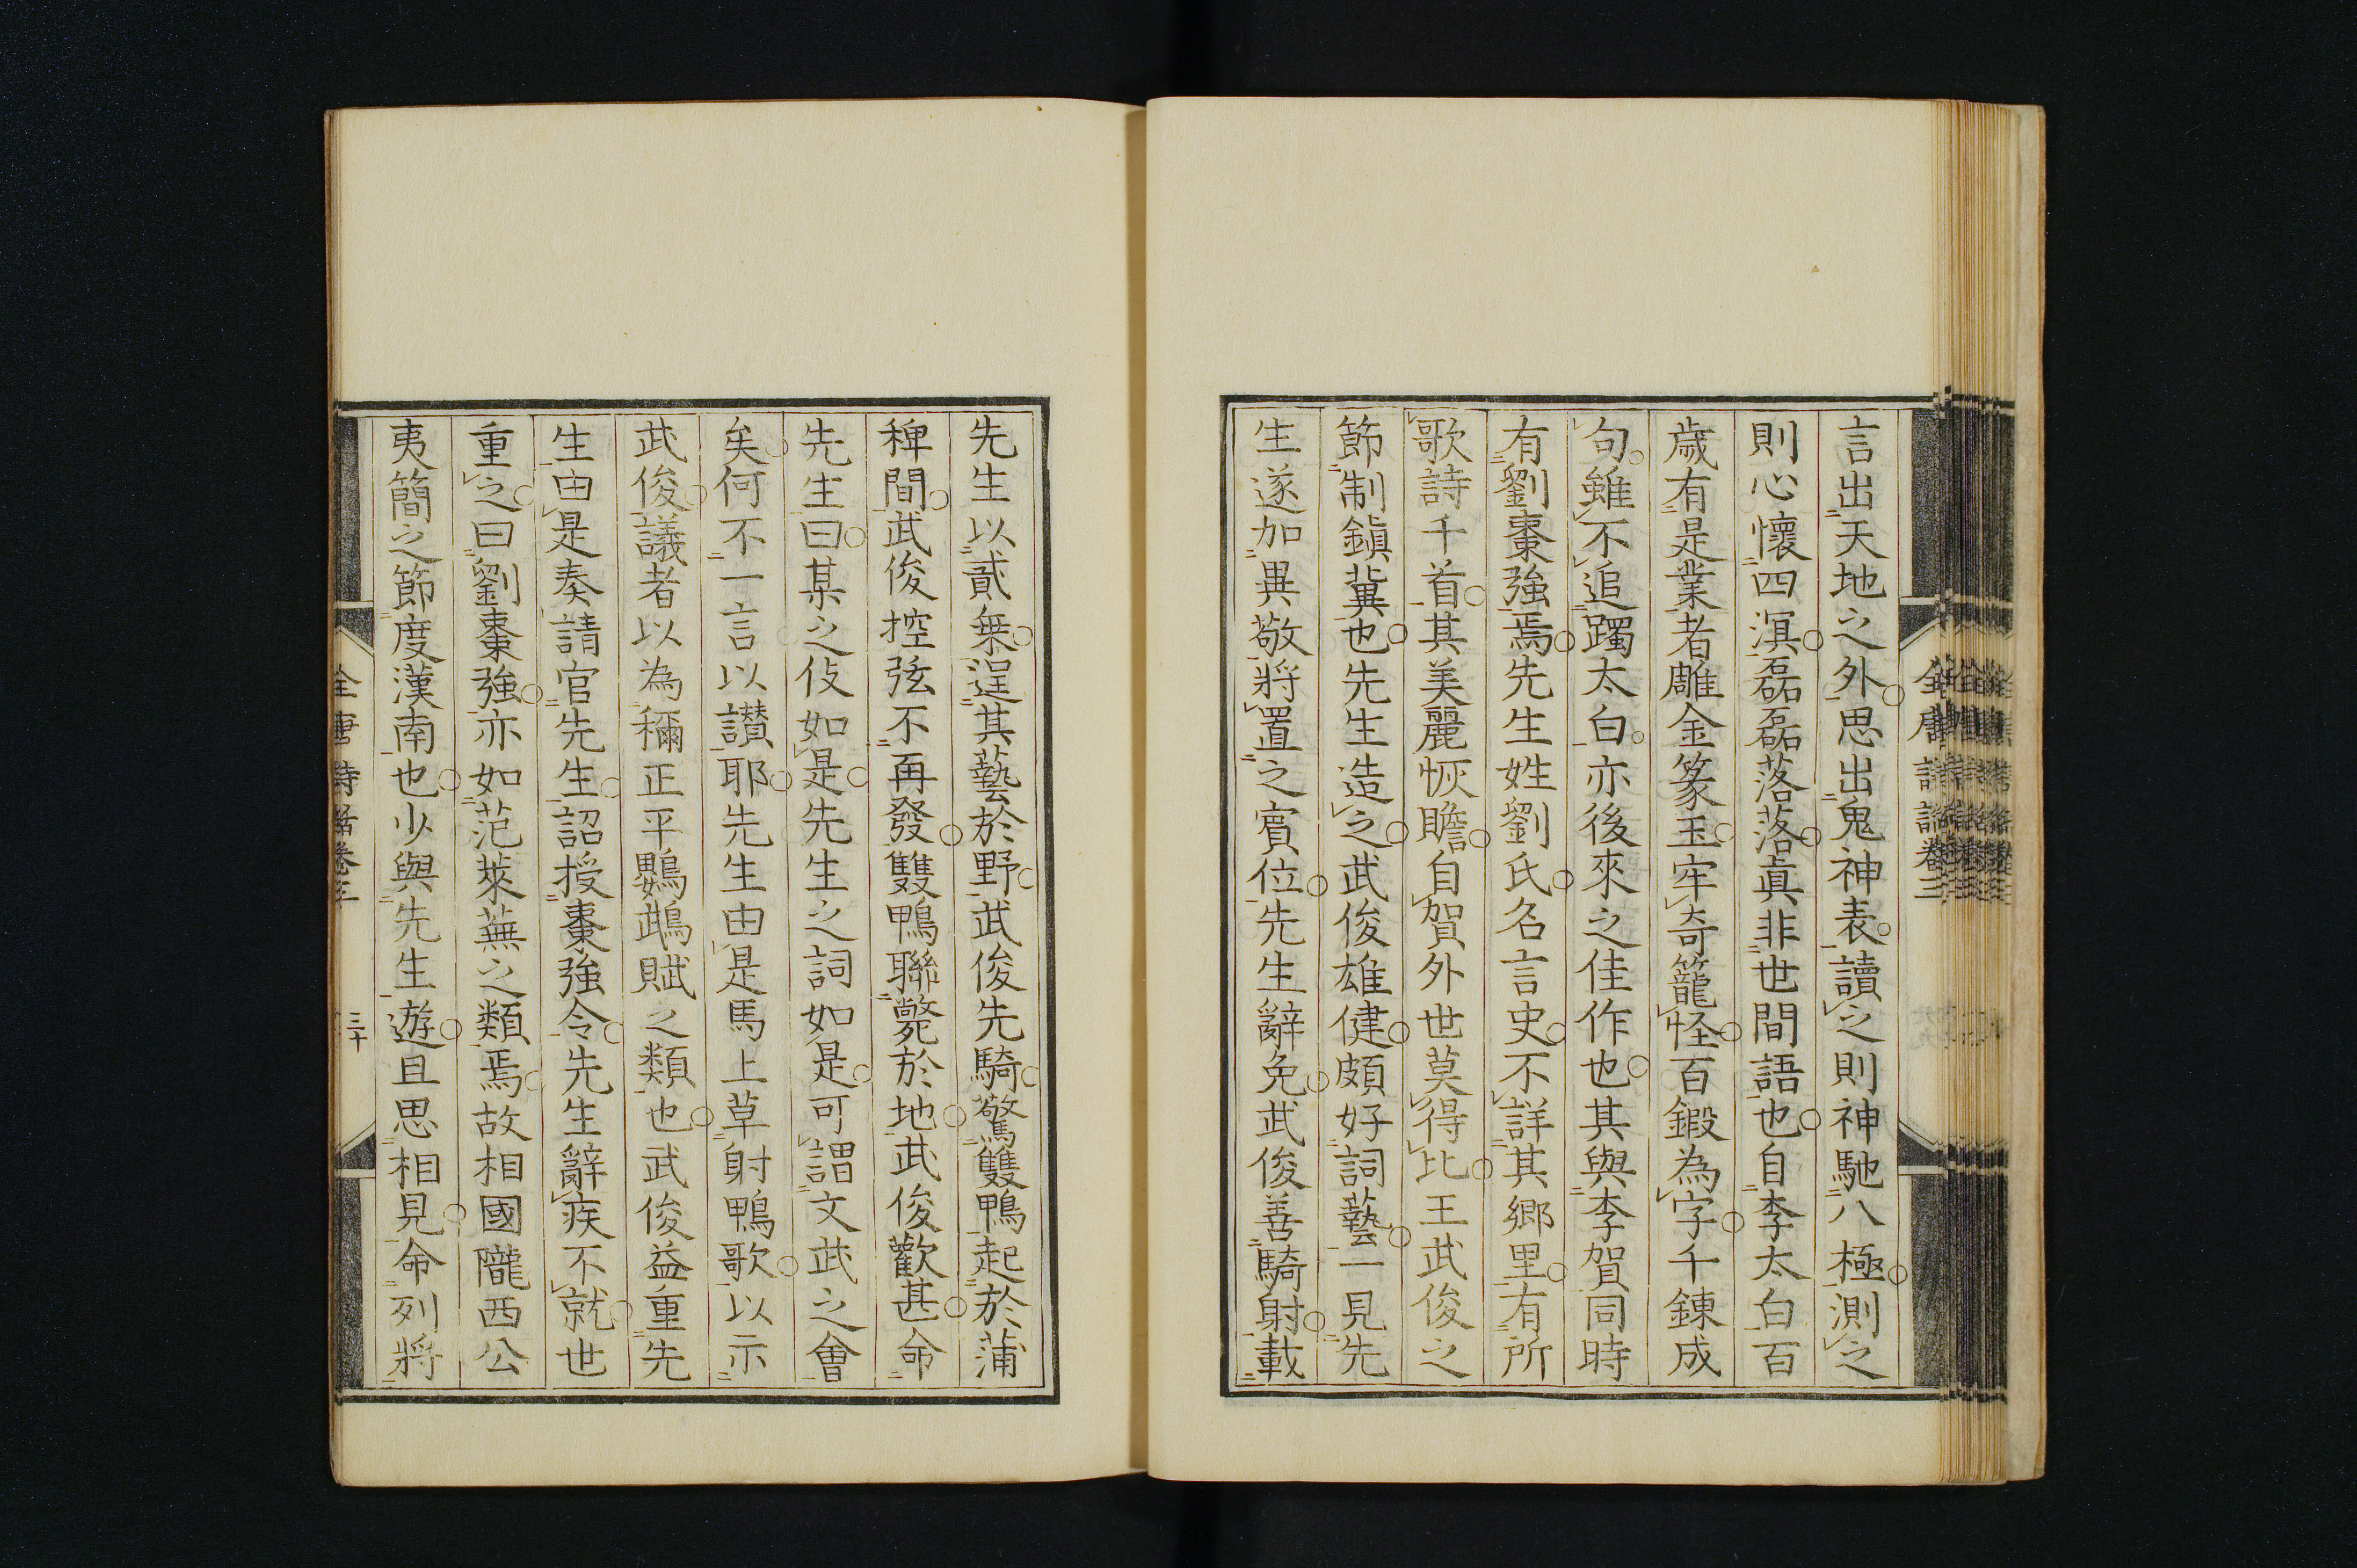 言出天地之外思出鬼神表讀之則神馳八極測之
則心懷四溟磊磊落落眞非世間語也自李太白百
歳有是業者雕金篆玉牢奇籠怪百鍛為字千錬成
句雖不追躅太白亦後來之佳作也其與李賀同時
有劉棗強焉先生姓劉氏名言史不詳其郷里有所
歌詩千首其美麗恢贍自賀外世莫得比王武俊之
節制鎭冀也先生造之武俊雄健頗好詞藝一見先
生遂加異敬將置之賓位先生辭免武俊善騎射載
先生以貳乗逞其藝於野武俊先騎驚雙鴨起於蒲
稗間武俊控弦不再發雙鴨聯斃於地武俊歡甚命
先生曰某之伎如是先生之詞如是可謂文武之會
矣何不一言以讃耶先生由是馬上草射鴨歌以示
武俊議者以為禰正平鸚鵡賦之類也武俊益重先
生由是奏請官先生詔授棗強令先生辭疾不就世
重之曰劉棗強亦如范萊蕪之類焉故相國隴西公
夷簡之節度漢南也少與先生遊且思相見命列將
全唐詩話卷三
全唐詩話卷三
三十